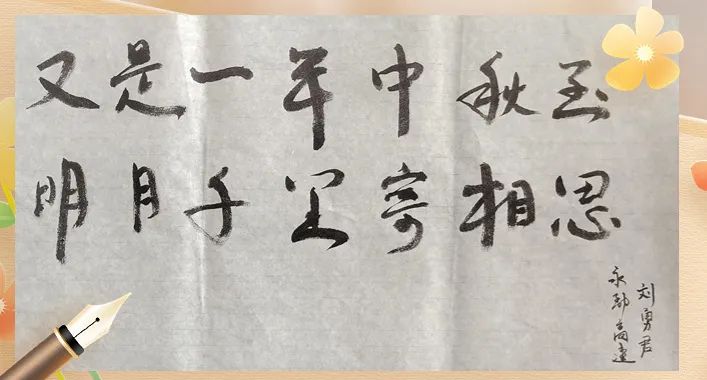 又是一年中秋至
明月千里寄相思
刘勇君
永郴高速